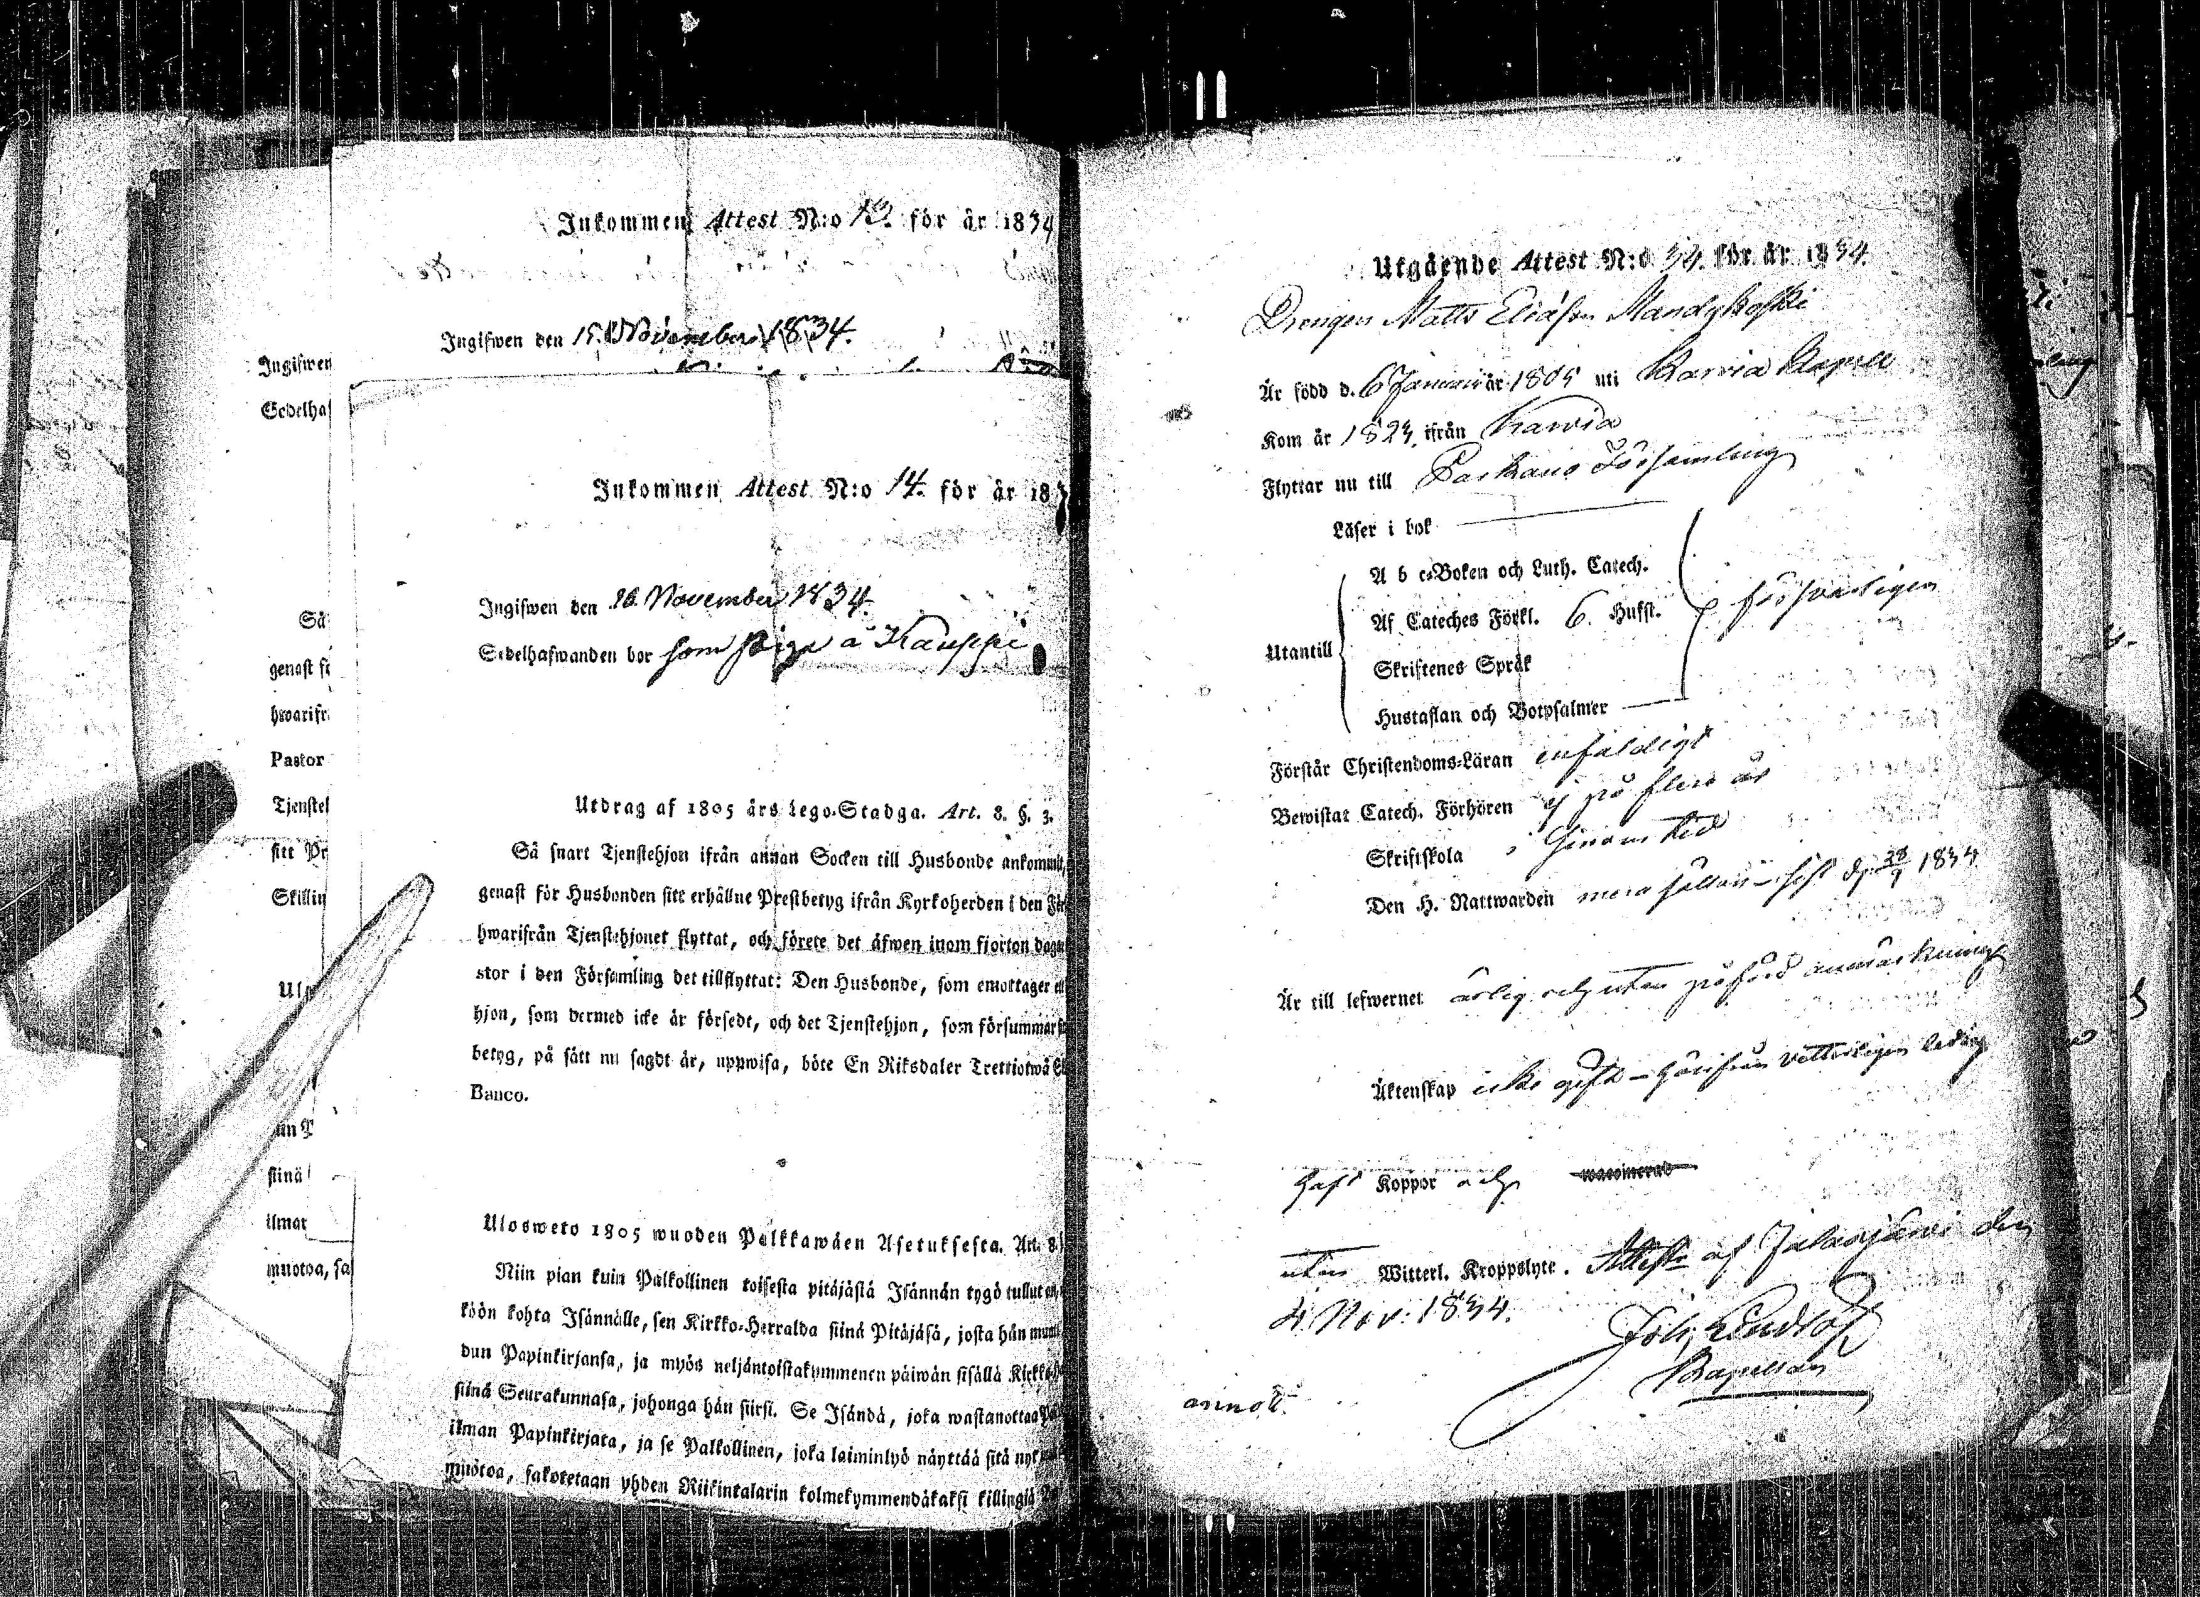 Inkommen Attest N:o 13. för år 1834
Ingifwen den 15. November 1834.
Ingifwen
Sedelhaf
Inkommen Attest N:o 14. för år 183
Ingifwen den 16. November 1834.
Sedelhafwanden bor som piga å Kauppi
Så
genast fö
hwarifr
Pastor
Tjenstel
sitt Pr
Skillin
Utdrag af 1805 års Lego-Stadga. Art. 8. §. 3.
Så snart Tjenstehjon ifrån annan Socken till Husbonde ankommit,
genast för Husbonden sitt erhållne Prestbetyg ifrån Kyrkoherden i den För
hwarifrån Tjenstehjonet flyttat, och förete det äfwen inom fjorton dagar
stor i den Församling det tillflyttat: Den Husbonde, som emottager
hjon, som dermed icke är försedt, och det Tjenstehjon, som försummar
betyg, på sätt nu sagdt är, uppwisa, böte En Riksdaler Trettiotwå
Banco.
stinä
ilmat
muotoa, sa
Ulosweto 1805 wuoden Palkkawäen Asetuksesta. Art. 8
Niin pian kuin Palkollinen toisesta pitäjästä Isännän tygö tullut on,
köön kohta Isännälle, sen Kirkko-Herralda siinä Pitäjäsä, josta hän muut
dun Papinkirjansa, ja myös neljäntoistakymmenen päiwän sisällä Kirkko
siinä Seurakunnasa, johonga hän siirsi. Se Isändä, joka wastanottaa
ilman Papinkirjata, ja se Palkollinen, joka laiminlyö näyttää sitä nyt
muotoa, sakotetaan yhden Riikinkalarin kolmekymmendäkaksi killingiä
Utgående Attest N:o 34. för år 1834.
Drengen Matts Eliasson Mandykoski
Är född d. 6 Januari år 1805 uti Karvia Kapell
Kom år 1823. ifrån Karvia
Flyttar nu till Parkano Församling
Läser i bok
A b c-Boken och Luth. Catech.
Af Cateches Förkl. 6. Hufst. försvarligen
Utantill
Skriftenes Språk
Hustaflan och Botpsalmer
Förstår Christendoms-Läran enfaldigt
Bewistat Catech. Förhören ej på flere år
Skriftskola i sinom tid
Den H. Nattwarden mera sällan - sist d. 28/9 1834
Är till lefwernet ärlig och utan påförd anmärkning
Äktenskap icke gift - härifrån vetterligen ledig
haft Koppor och waccinerad
utan Witterl. Kroppslyte. Attest. af Jalasjärvi den
4 Nov. 1834.
Joh. Lindlöf
Kapellan
annot.